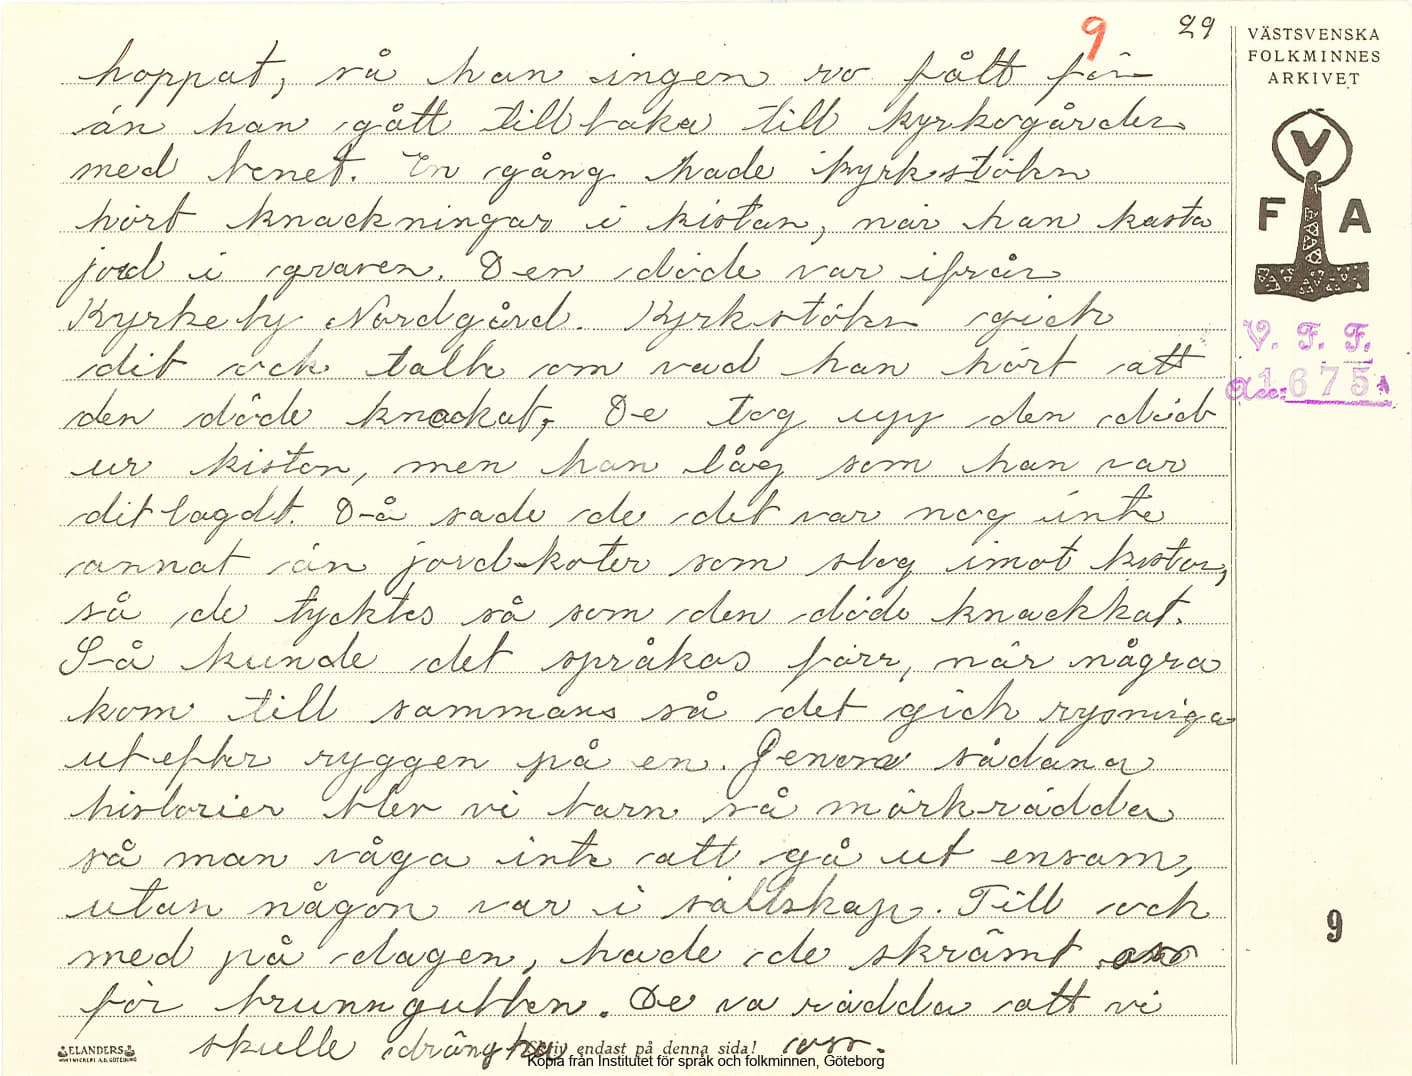 9 29
hoppat, så han ingen ro fått för
än han gått tillbaka till kyrkogården
med benet. En gång hade kyrkstökn
hört knackningar i kistan, när han kasta
jord i graven. Den döde var ifrån
Kyrkeby Nordgård. Kyrkstökn gick
dit och talte om vad han hört att
den döde knackat, De tog upp den död
ur kistan, men han låg som han var
ditlagdt. Då sade de det var nog inte
annat än jord-koter som slog imot kistan,
så de tycktes så som den döde knackkat.
Så kunde det språkas förr, när några
kom till sammans så det gick rysniga
utefter ryggen på en. Genom sådana
historier blev vi barn så mörkrädda
så man våga inte att gå ut ensam,
utan någon var i sällskap. Till och
med på dagen, hade de skrämt oss
för brunngubben. De va rädda att vi
skulle drängka oss.
VÄSTSVENSKA
FOLKMINNES
ARKIVET
V
F A
V. F. F.
Acc: 1675
9
ELANDERS
Skriv endast på denna sida!
Kopia från Institutet för språk och folkminnen, Göteborg